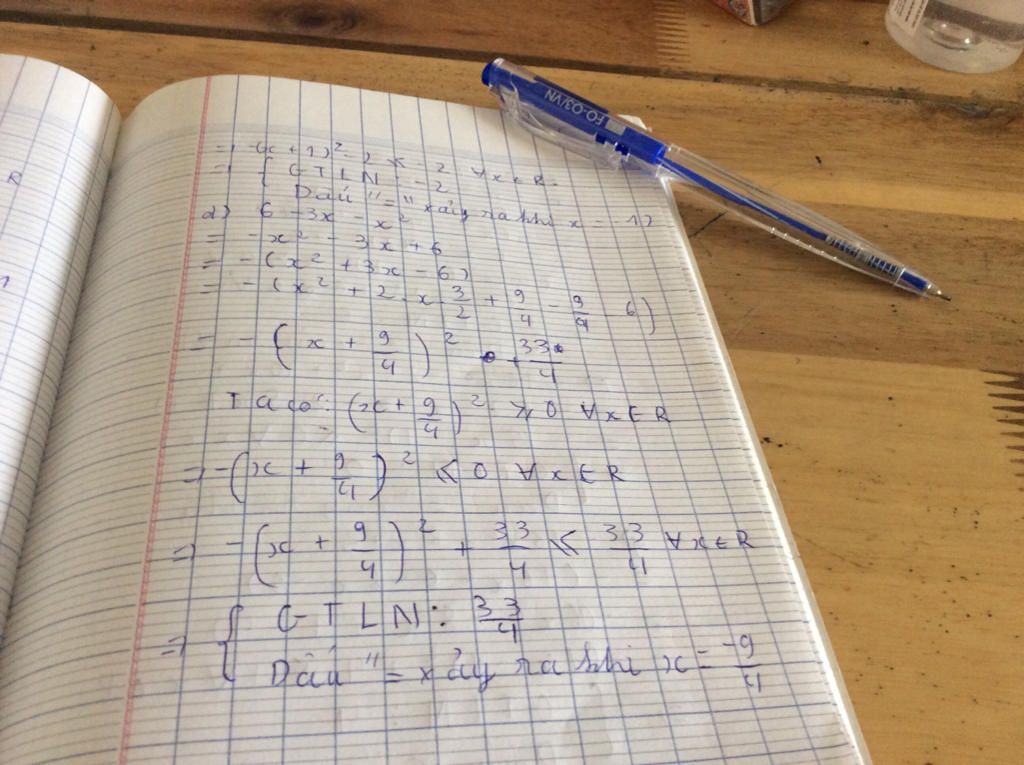 = -(x + 1)² - 2 ≤ -2 ∀x ∈ R
⇒ { GTLN = -2
Dấu "=" xảy ra khi x = -1
d) 6 - 3x - x²
= -x² - 3x + 6
= -(x² + 3x - 6)
= -(x² + 2 . x . 3/2 + 9/4 - 9/4 - 6)
= -(x + 9/4)² 33/4
Ta có: (x + 9/4)² ≥ 0 ∀x ∈ R
⇒ -(x + 9/4)² ≤ 0 ∀x ∈ R
⇒ -(x + 9/4)² + 33/4 ≤ 33/4 ∀x ∈ R
⇒ { GTLN: 33/4
Dấu "= xảy ra khi x = -9/4
FO-03/VN